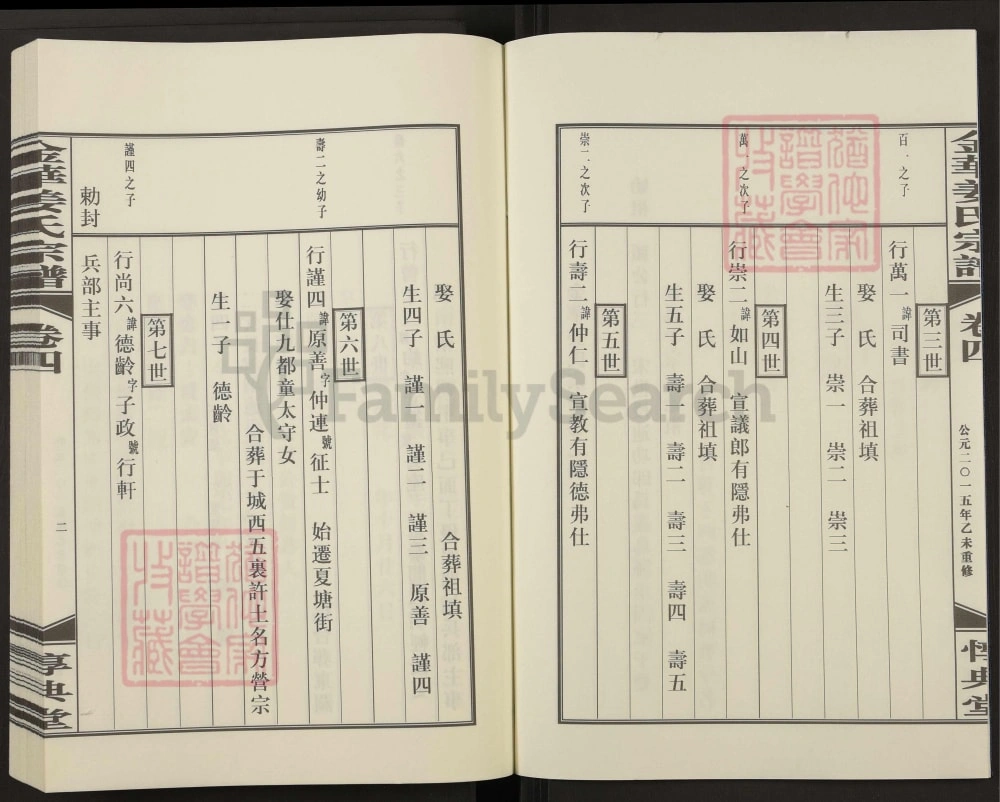 金華姜氏宗譜
卷四
公元二〇一五年乙未重修
惇典堂
第三世
百一之子
行萬一諱司書
娶 氏 合葬祖填
生三子 崇一 崇二 崇三
第四世
萬一之次子
行崇二諱如山 宣議郎有隱弗仕
娶 氏 合葬祖填
生五子 壽一 壽二 壽三 壽四 壽五
第五世
崇二之次子
行壽二諱仲仁 宣教有隱德弗仕
娶 氏 合葬祖填
生四子 謹一 謹二 謹三 原善 謹四
第六世
壽二之幼子
行謹四諱原善字仲連號征士 始遷夏塘街
娶仕九都童太守女
合葬于城西五裏許土名方營宗
生一子 德齡
第七世
謹四之子
行尚六諱德齡字子政號行軒
勅封
兵部主事
金華姜氏宗譜
卷四
二
惇典堂
譜學會
收藏
譜學會
收藏
FamilySearch